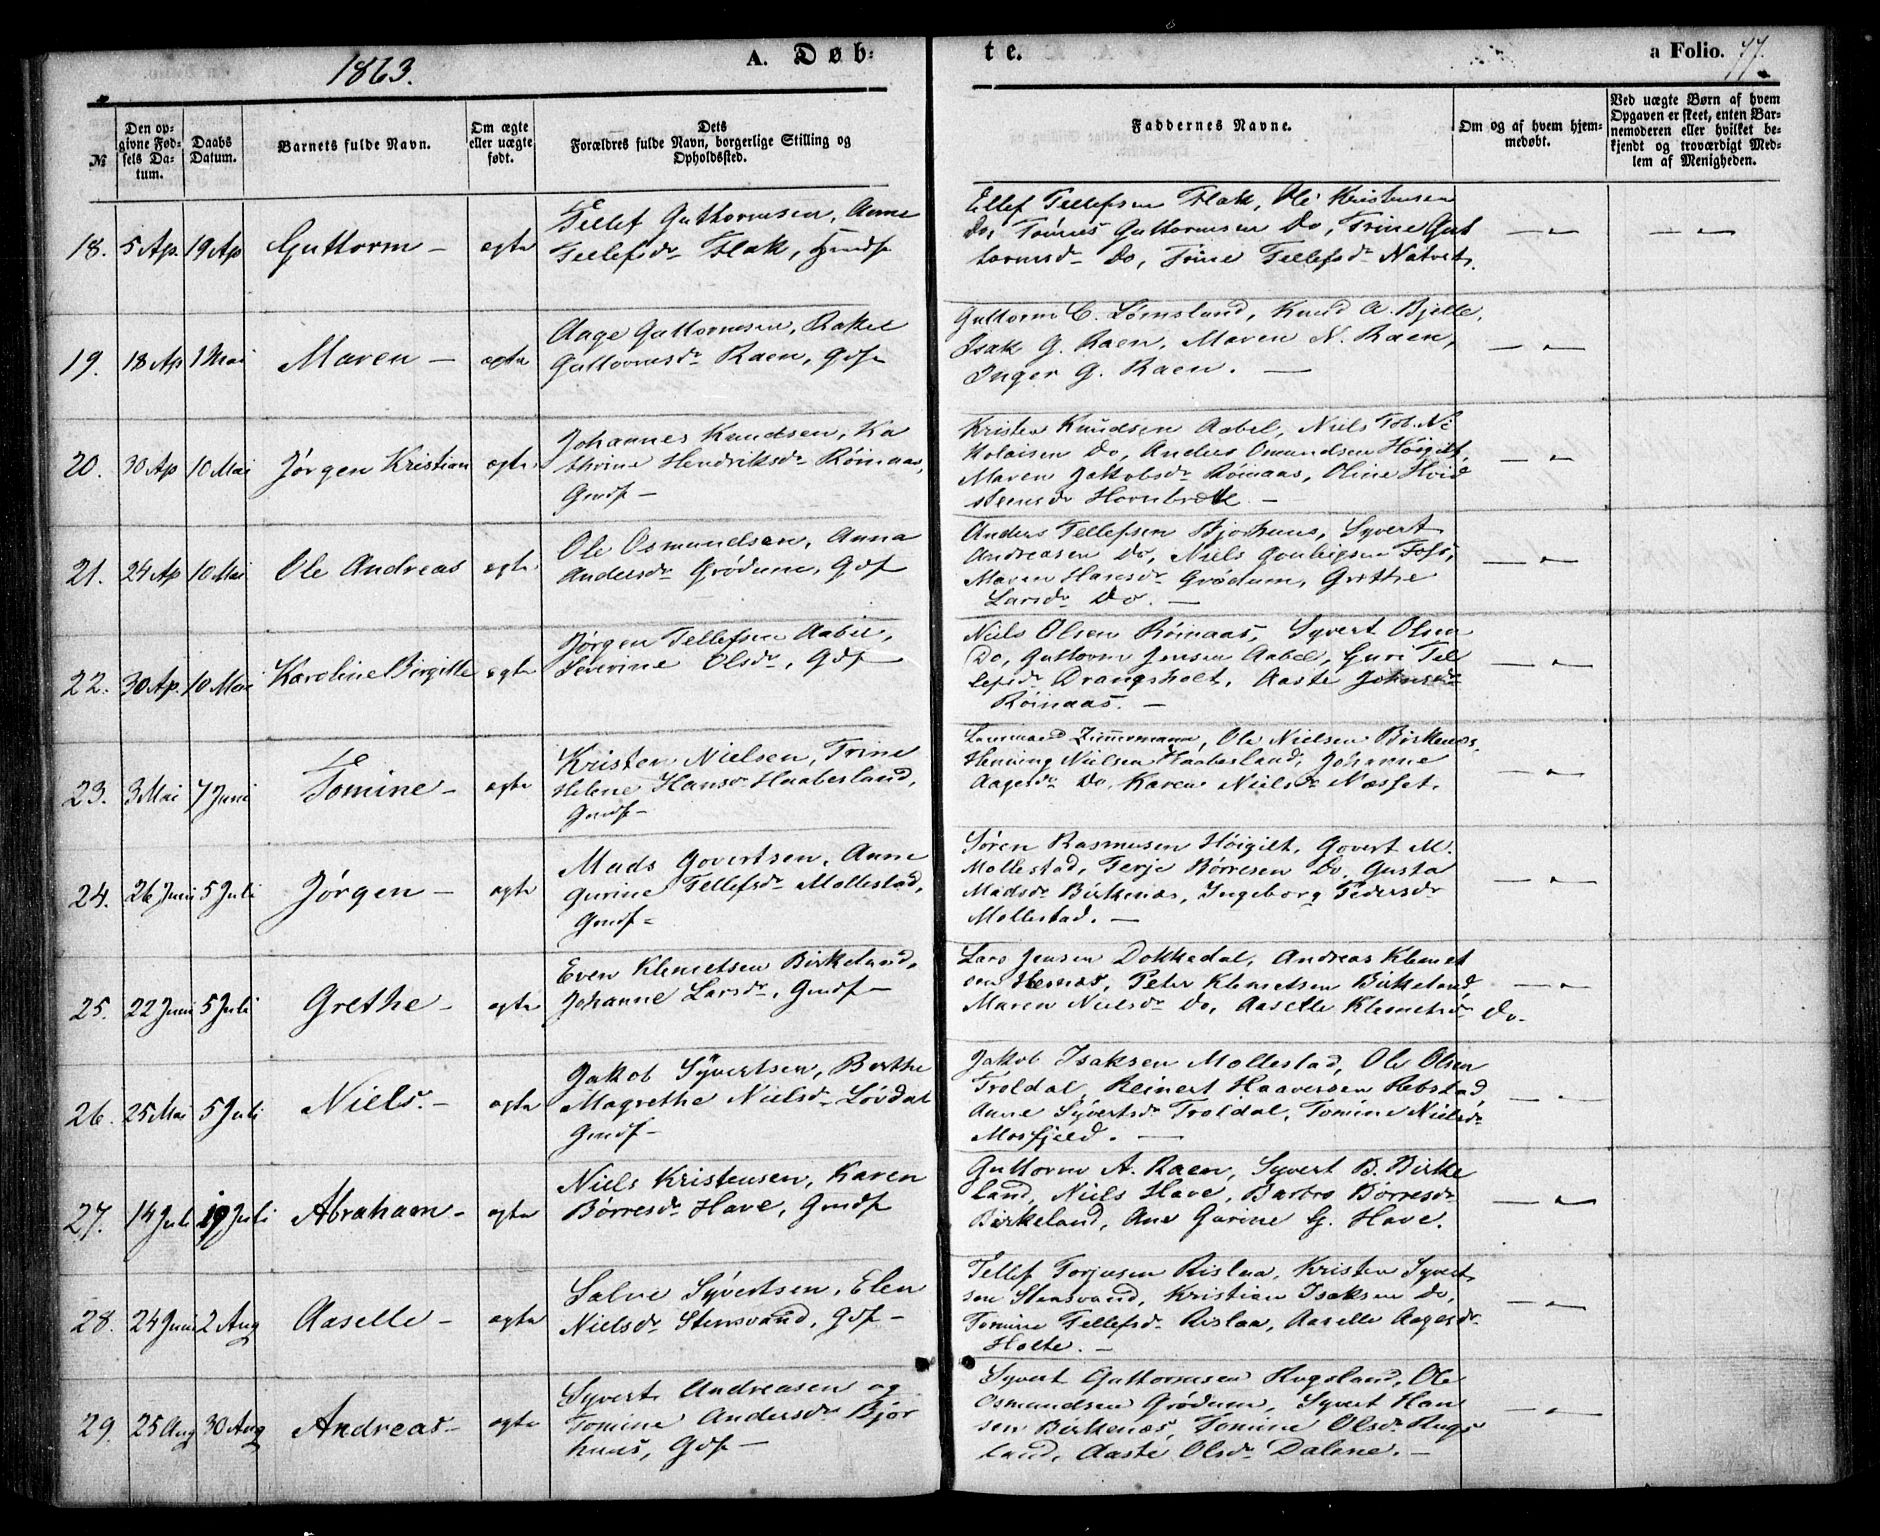 1863.
A. Døb-
te.
a Folio. 77.
№
Den opgivne Fødsels Datum.
Daabs Datum.
Barnets fulde Navn.
Om ægte eller uægte født.
Dets Forældres fulde Navn, borgerlige Stilling og Opholdssted.
Faddernes Navne.
Om og af hvem hjemmedøbt.
Ved uægte Børn af hvem Opgaven er skeet, enten Barnemoderen eller hvilket bekjendt og troværdigt Medlem af Menigheden.
18. 5 Ap. 19 Ap Guttorm – ægte
Tellef Guttormsen, Anne
Tellefsdr Flak, Gmdf
Ellef Tellefsen Flak, Ole Kristensen
Do, Tømes Guttormsen Do, Trine Gut
tormsdr Do, Trine Tellefsdr Natvet.
19. 18 Ap 1 Mai Maren – ægte
Aage Guttormsen, Rakel
Guttormsdr Raen, Gdf
Guttorm C. Lømsland, Knud A. Bjelle,
Isak G. Raen, Maren N. Raen,
Inger G. Raen. –
20. 30 Ap 10 Mai Jørgen Kristian ægte
Johannes Knudsen, Ka
thrine Hendriksdr Røinaas,
Gmdf –
Kristen Knudsen Aabel, Niels Tob. Ni
kolaisen Do, Anders Omundsen Høigilt,
Maren Jakobsdr Røinaas, Oline Hvid
steensdr Hornbrække –
21. 24 Ap 10 Mai Ole Andreas ægte
Ole Osmundsen, Anna
Andersdr Grødum, Gdf
Anders Tellefsen Bjorhuus, Syvert
Andreasen Do, Niels Gunleigsen Fosse,
Maren Hansdr Grødum, Grethe
Larsdr Do. –
22. 30 Ap. 10 Mai Karoline Birgitte ægte
Jørgen Tellefsen Aabel,
Severine Olsdr, Gdf
Niels Olsen Røinaas, Syvert Olsen
Do, Guttorm Jensen Aabel, Guri Tel
lefsdr Drangsholt, Aaste Johnsdr
Røinaas. –
23. 3 Mai 7 Juni Tomine – ægte
Kristen Nielsen, Trine
Helene Hansdr Haabesland,
Gmdf –
Zimmermann, Ole Nielsen Birkenæs,
Henning Nielsen Haabesland, Johanne
Aagesdr Do, Karen Nielsdr Næsset.
24. 26 Juni 5 Juli Jørgen – ægte
Mads Govertsen, Anne
Gurine Tellefsdr Mollestad,
Gmdf –
Søren Rasmusen Høigilt, Govert M.
Mollestad, Terje Børresen Do, Gusta
Madsdr Birkenæs, Ingeborg Pedersdr
Mollestad. –
25. 22 Juni 5 Juli Grethe – ægte
Even Klemetsen Birkeland,
Johanne Larsdr, Gmdf –
Lars Jensen Dokkedal, Andreas Klemet
sen Hernæs, Peter Klemetsen Birkeland,
Maren Nielsdr Do, Aaselle Klemetsdr Do.
26. 25 Mai 5 Juli Niels. – ægte
Jakob Syvertsen, Berthe
Magrethe Nielsdr Løvdal
Gmdf –
Jakob Isaksen Mollestad, Ole Olsen
Troldal, Reinert Haaversen Rebstad,
Anne Syvertsdr Troldal, Tomine Nielsdr
Mosfjeld. –
27. 14 Juli 19 Juli Abraham – ægte
Niels Kristensen, Karen
Børresdr Have, Gmdf
Guttorm A. Raen, Syvert B. Birke
land, Niels Have, Barbro Børresdr
Birkeland, Ane Gurine G. Have.
28. 24 Juni 2 Aug Aaselle – ægte
Salve Syvertsen, Elen
Nielsdr Stensvand, Gdf –
Tellef Torjusen Rislaa, Kristen Syvert
sen Stensvand, Kristian Isaksen Do,
Tomine Tellefsdr Rislaa, Aaselle Aagesdr
Holte. –
29. 25 Aug 30 Aug Andreas – ægte
Syvert Andreasen og
Tomine Andersdr Bjor
huus, Gdf –
Syvert Guttormsen Hugsland, Ole
Osmundsen Grødum, Syvert Han
sen Birkenæs, Tomine Olsdr Hugs
land, Aaste Olsdr Dalene. –